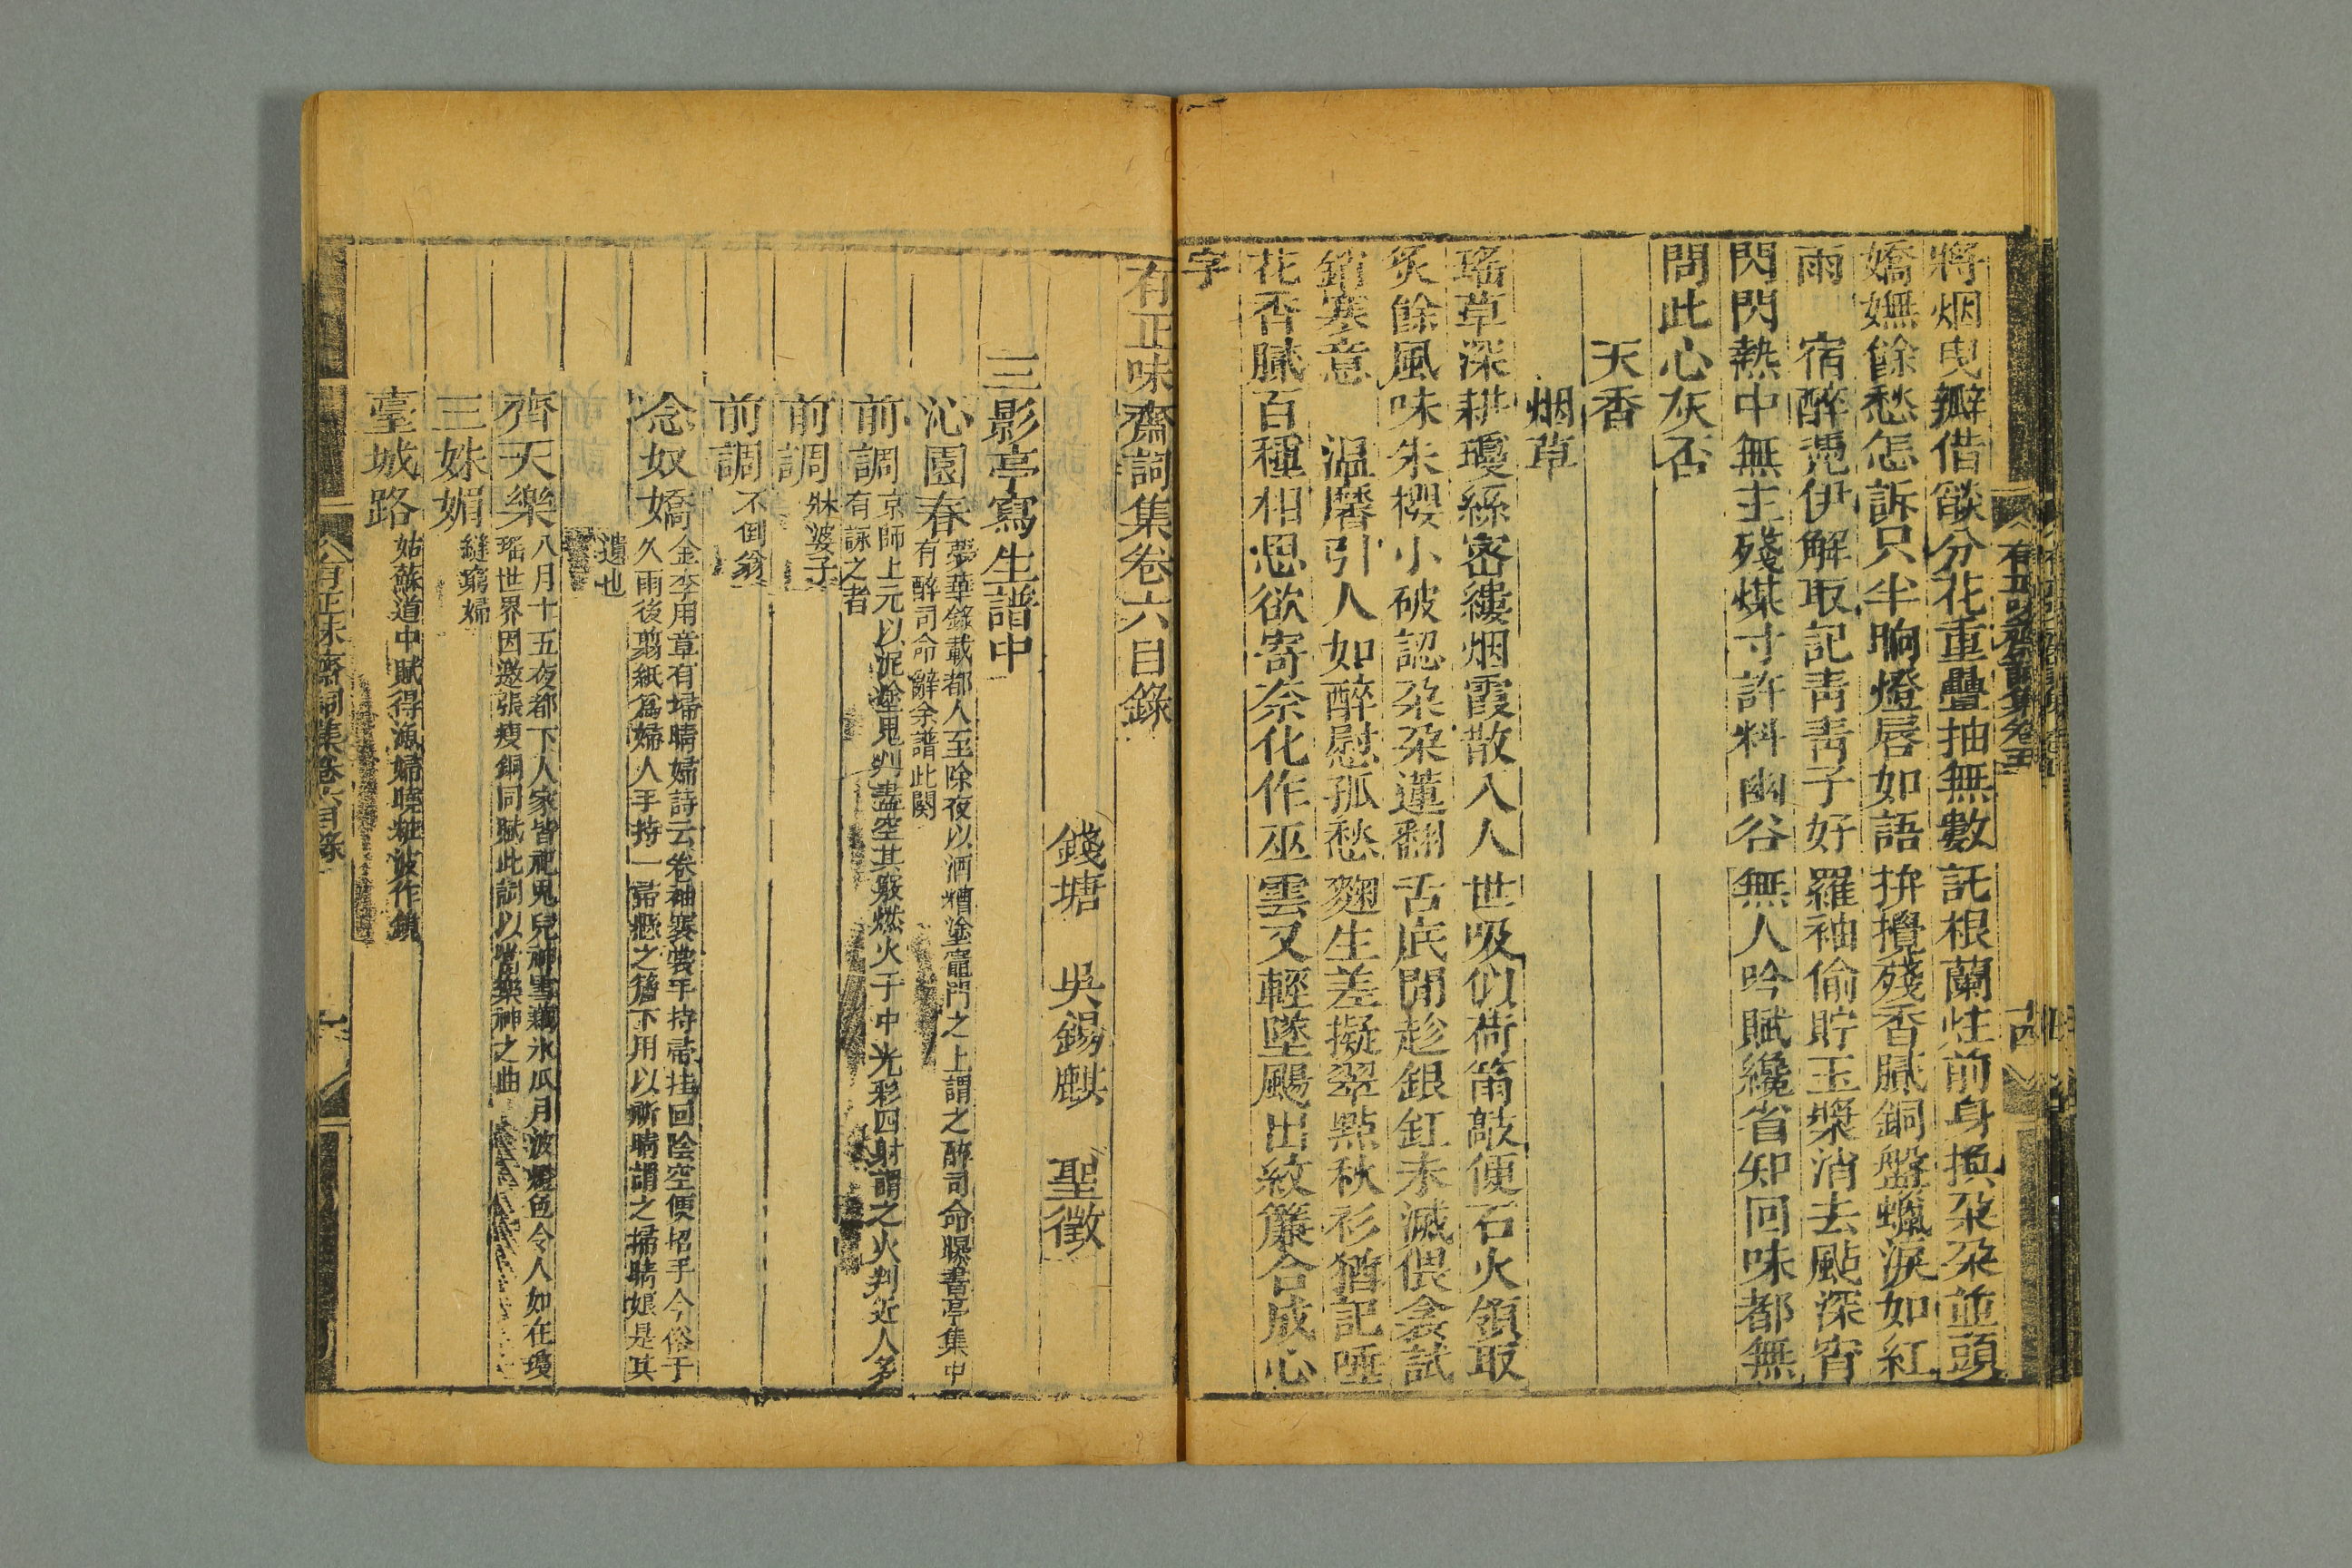 將烟曳瓣借餤分花重疊抽無數託根蘭炷前身換朶朶並頭
嬌嫵餘愁怎訴只半晌燈唇如語拚攪殘香膩銅盤蠟淚如紅
雨　宿醉凴伊解取記靑靑子好羅袖偷貯玉槳消去颭深宵
閃閃熱中無主殘煤寸許料幽谷無人吟賦纔省知回味都無
問此心灰否
天香
烟草
瑤草深耕瓊絲密縷烟霞散入人世吸似荷筩敲便石火領取
炙餘風味朱櫻小破認朶朶蓮翻舌底閒趁銀釭未滅偎衾試
銷寒意　温黁引人如醉慰孤愁麴生差擬翠點秋衫猶記唾
花香膩百種相思欲寄奈化作巫雲又輕墜颺出紋簾合成心
字
有正味齋詞集卷六目錄
錢塘　吳錫麒　聖徵
三影亭寫生譜中
沁園春
夢華錄載都人至除夜以酒糟塗竈門之上謂之醉司命曝書亭集中
有醉司命辭余譜此闋
前調
京師上元以泥塗鬼判盡空其竅燃火于中光彩四射謂之火判近人多
有詠之者
前調 牀婆子
前調 不倒翁
念奴嬌
金李用章有埽晴婦詩云卷袖褰裳手持帚挂回陰空便招手今俗于
久雨後翦紙爲婦人手持一帚懸之簷下用以祈晴謂之掃晴娘是其
遺也
齊天樂
八月十五夜都下人家皆祀兔兒神雪藕氷瓜月波燈色令人如在瓊
瑤世界因邀張瘦銅同賦此詞以當樂神之曲
三姝媚 縫窮婦
臺城路 姑蘇道中賦得漁婦曉妝波作鏡
有正味齋詞集卷六目錄